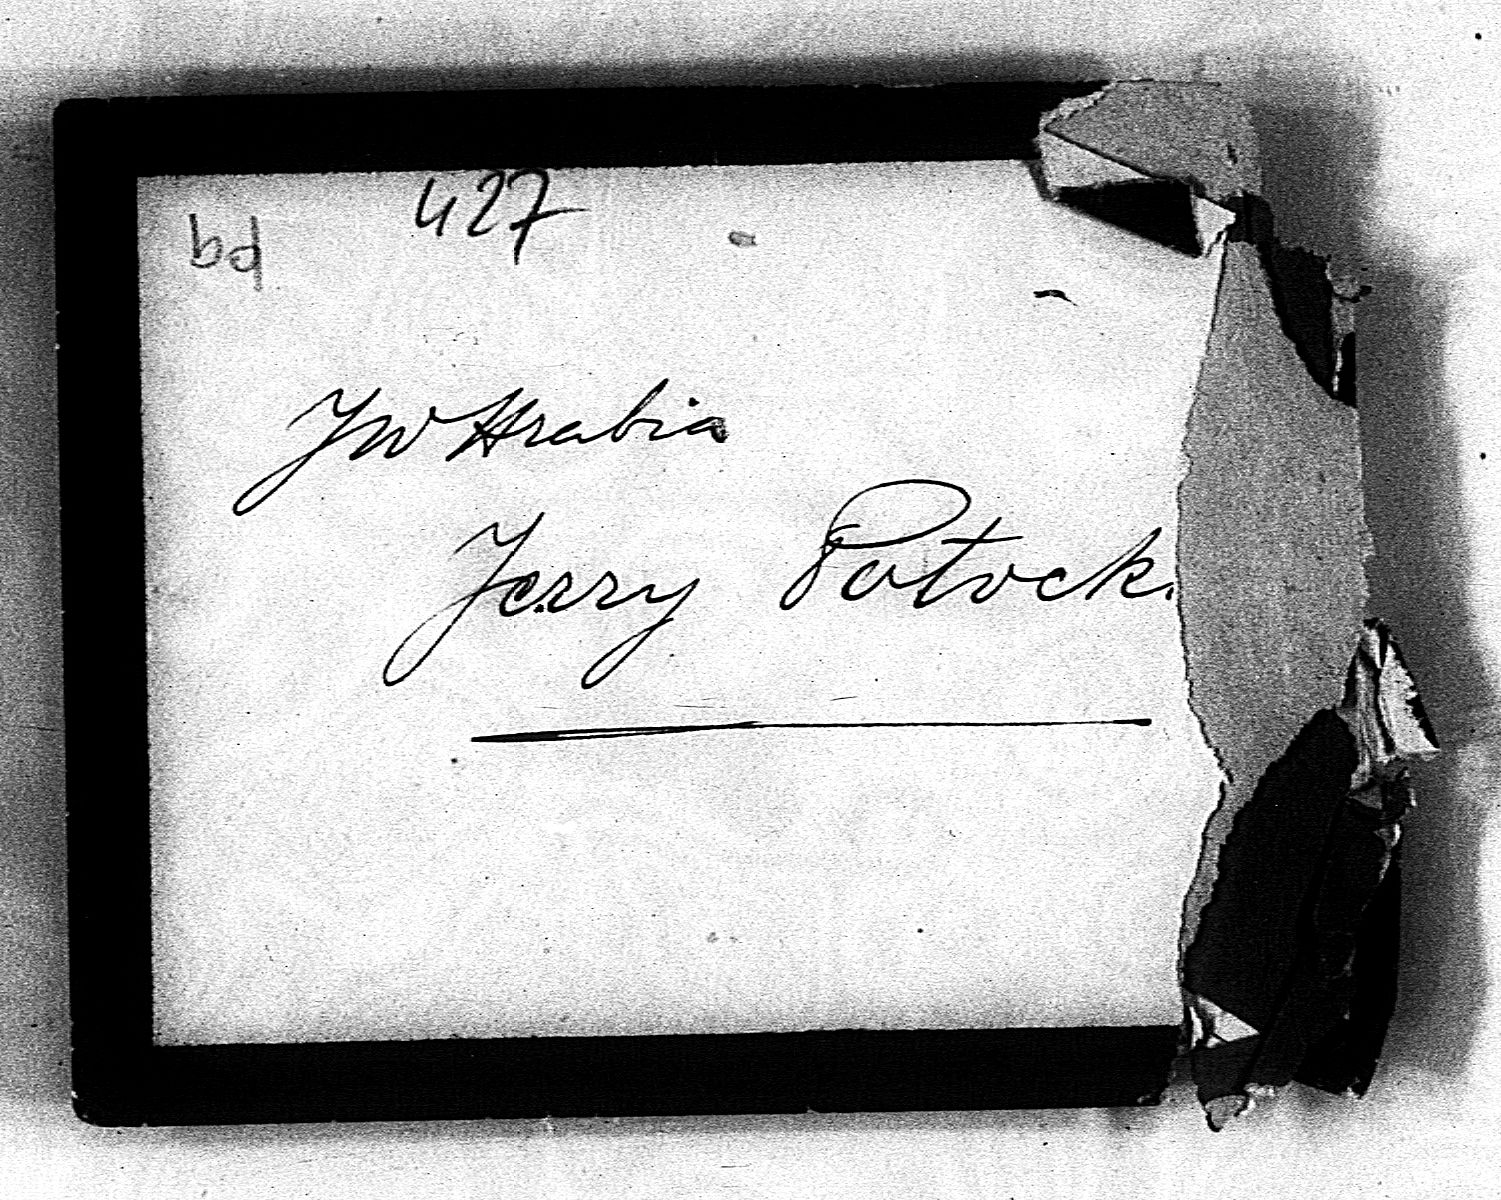 427
bd
JW Hrabia
Jerzy Potock